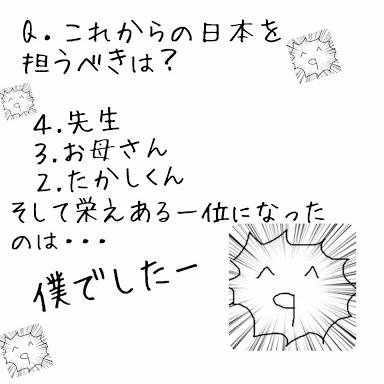 Q.これからの日本を
担うべきは?
4.先生
3.お母さん
2.たかしくん
そして栄えある一位になった
のは・・・
僕でしたー